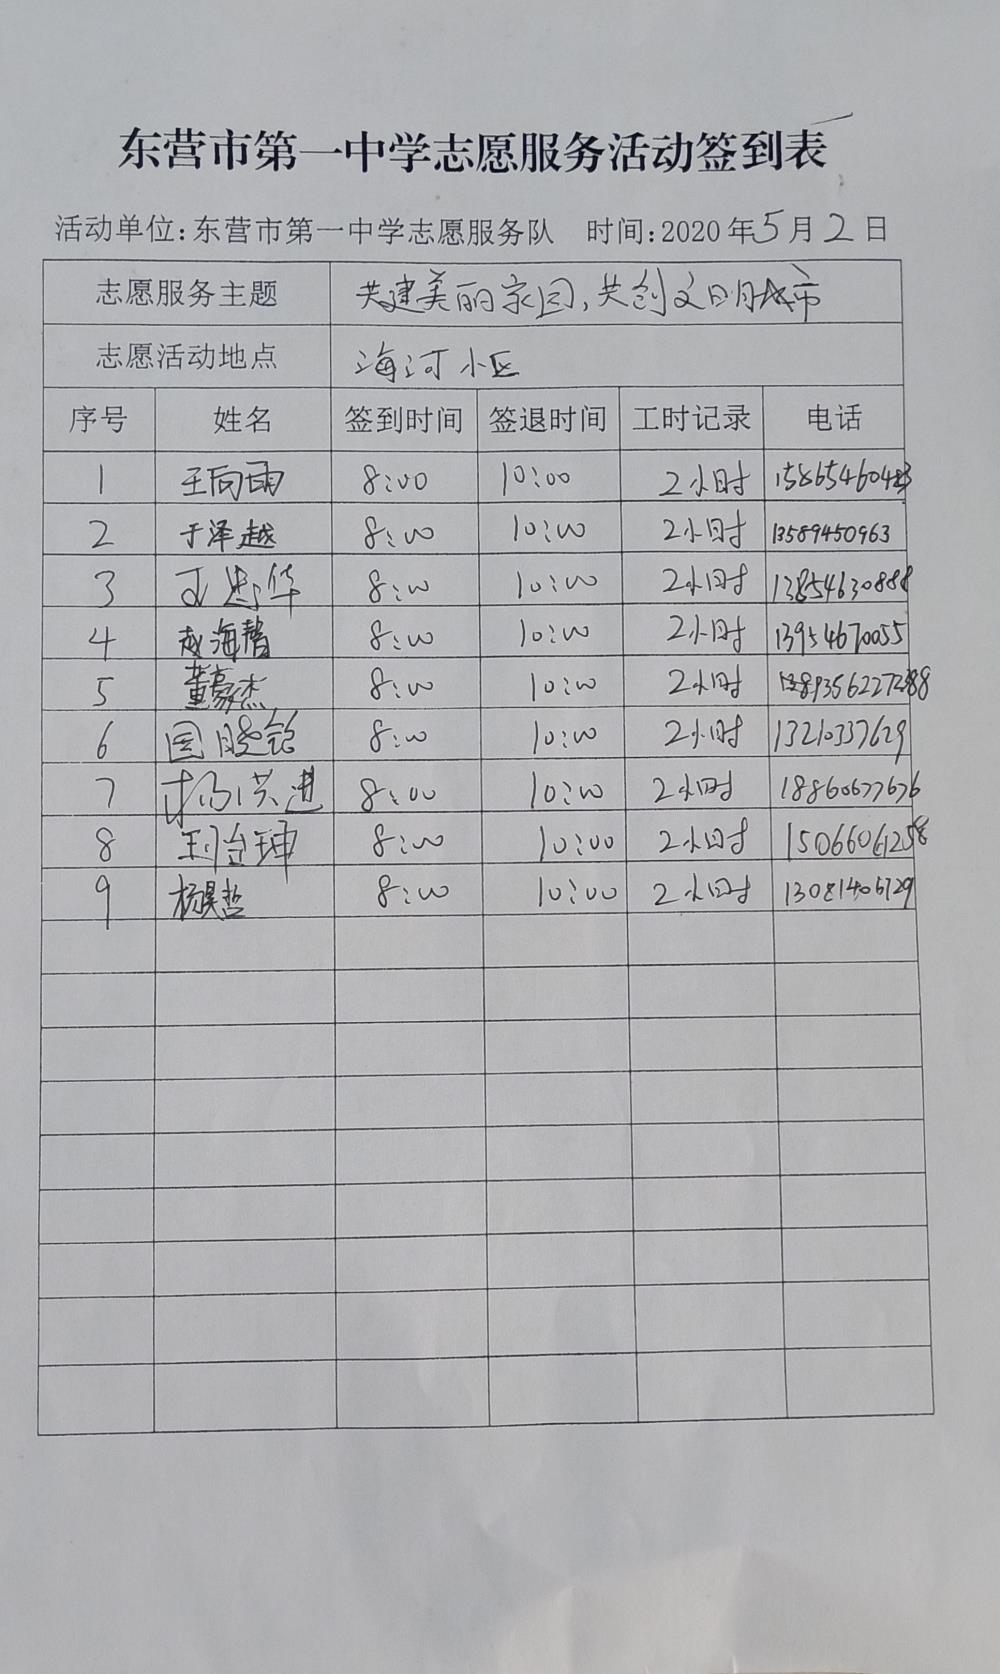 东营市第一中学志愿服务活动签到表
活动单位:东营市第一中学志愿服务队 时间:2020年5月2日
志愿服务主题 共建美丽家园,共创文明城市
志愿活动地点 海河小区
序号 姓名 签到时间 签退时间 工时记录 电话
1 王向雨 8:00 10:00 2小时
2 于泽越 8:00 10:00 2小时 13589450963
3 8:00 10:00 2小时 13854630888
4 8:00 10:00 2小时 13954670055
5 董豪杰 8:00 10:00 2小时
6 国晓铭 8:00 10:00 2小时 13210337629
7 杨洪进 8:00 10:00 2小时 18860677676
8 8:00 10:00 2小时
9 杨昊哲 8:00 10:00 2小时 13081406729